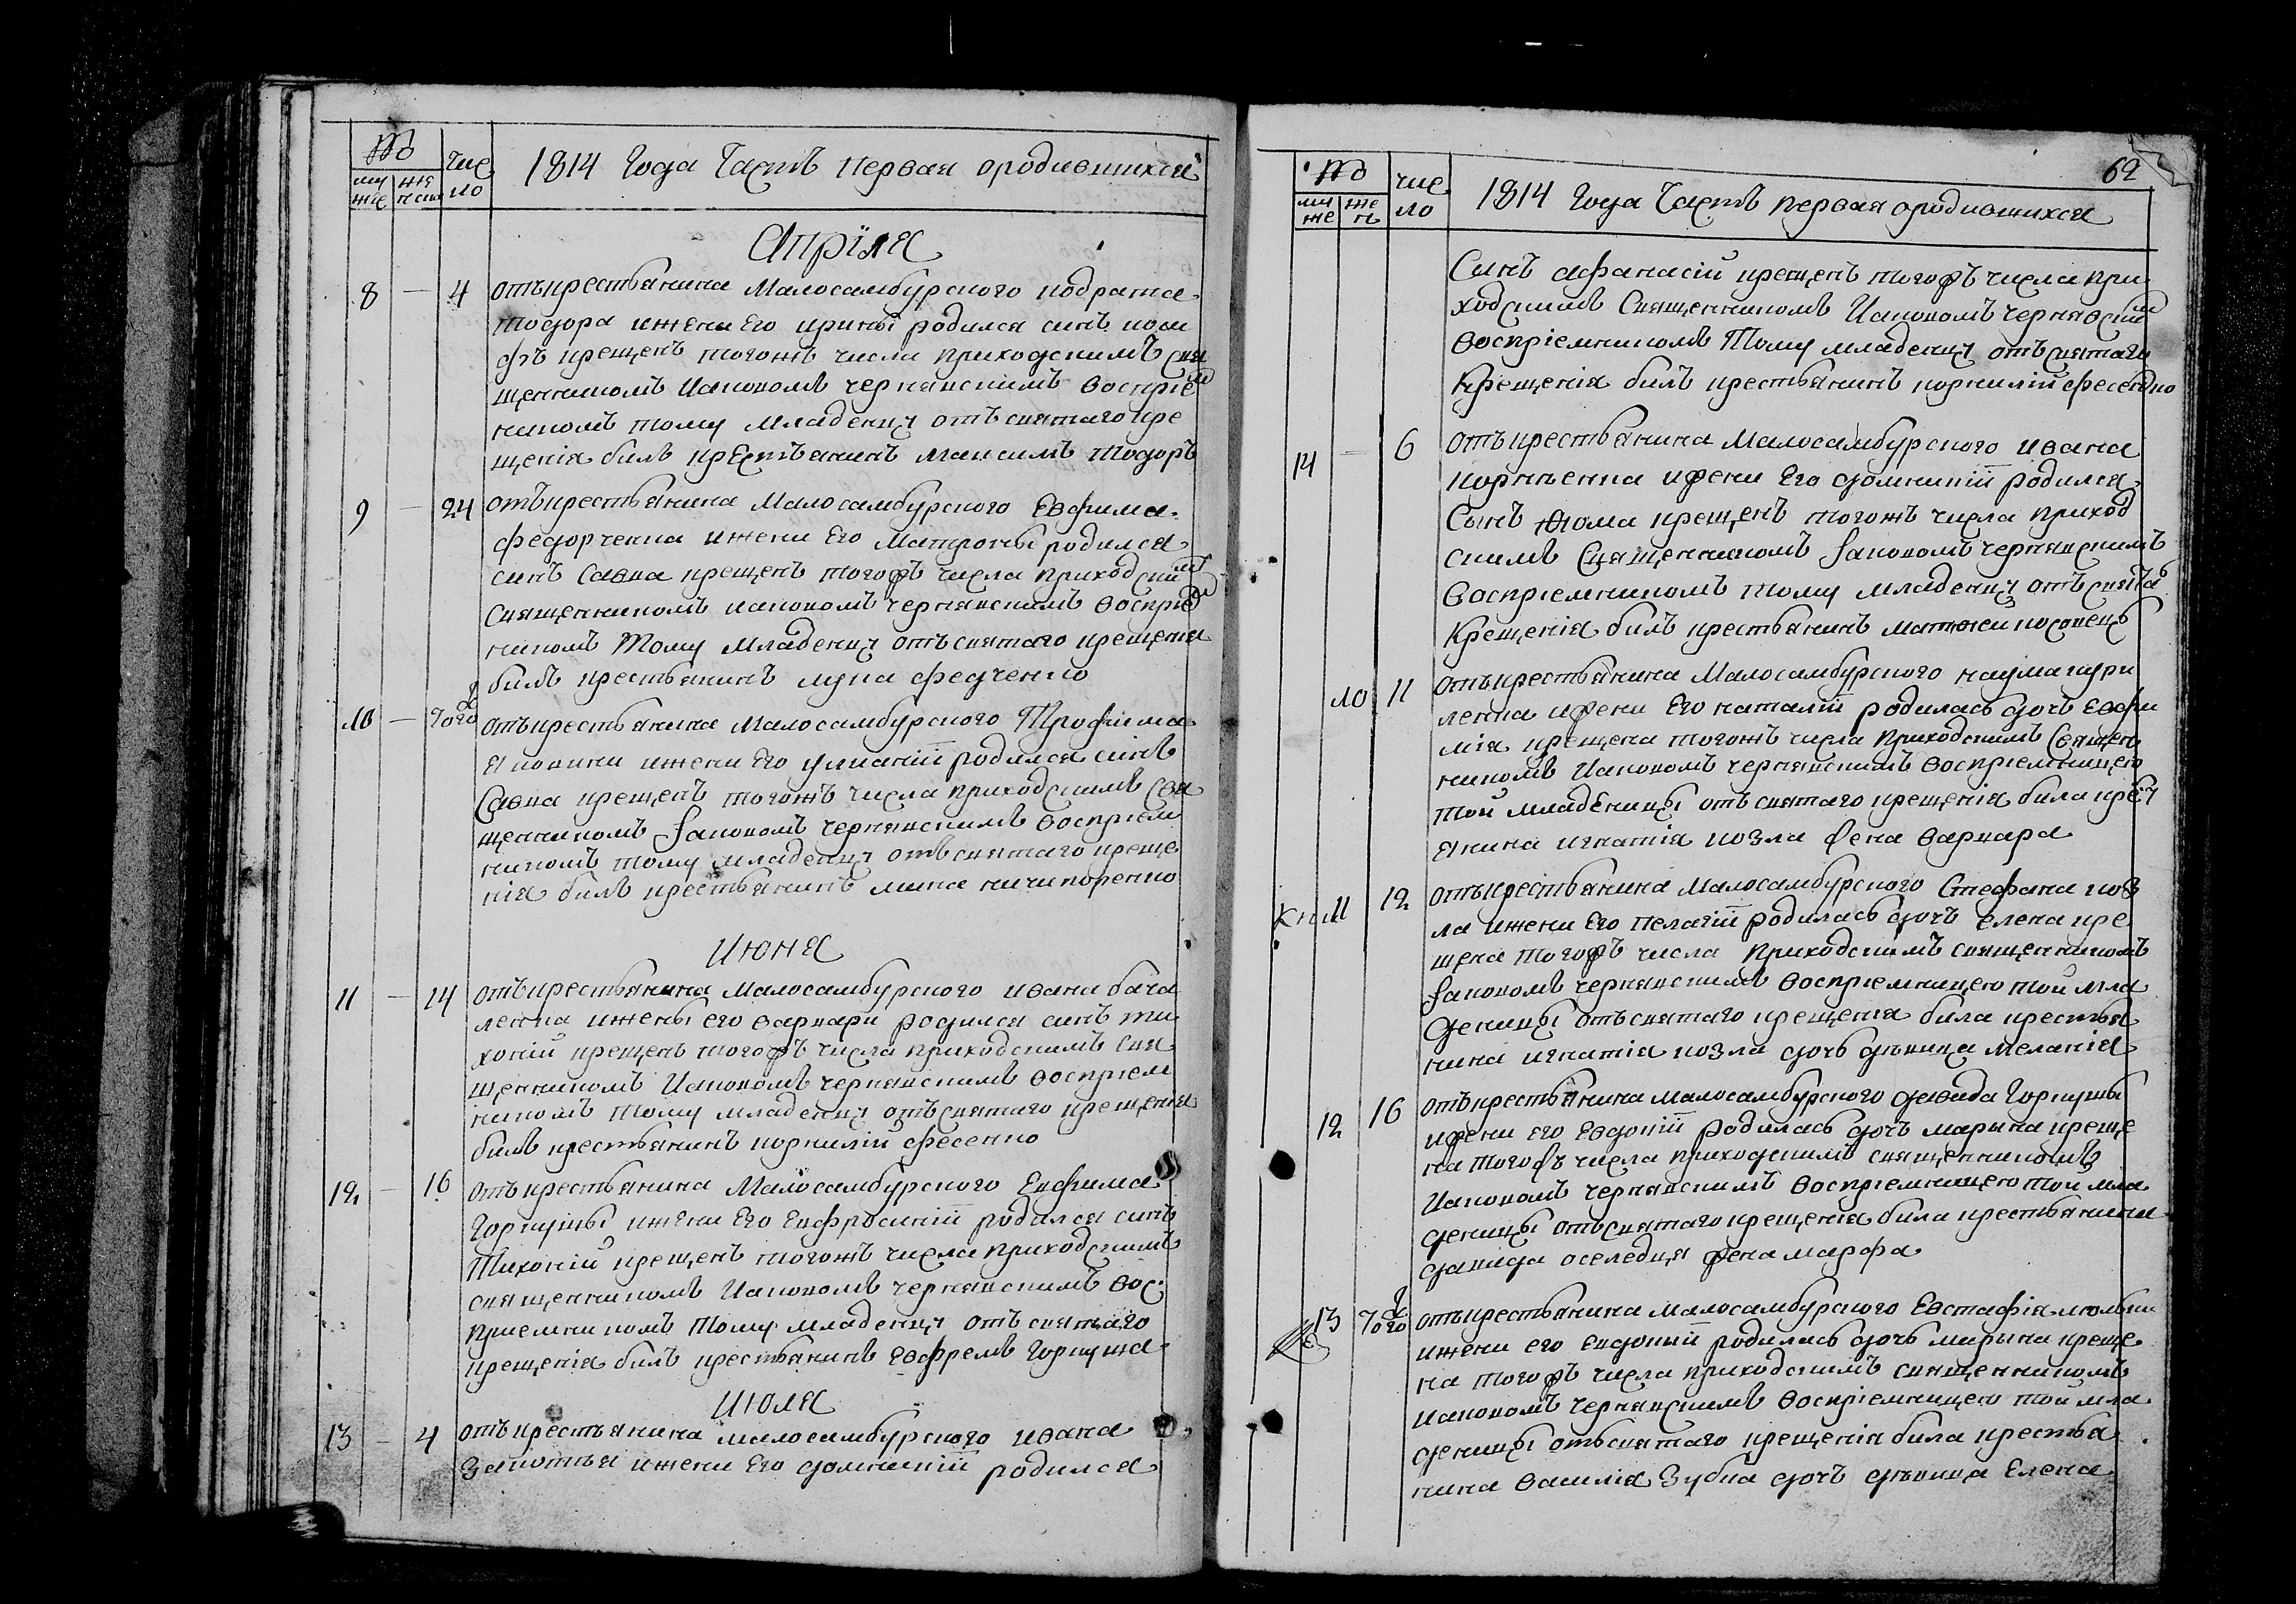 Щотъ
чис
му
же
ло
1814 Года Часть Первая ородившихся
Апрѣля
8 — 4 отъкрестьянина Малосамбурского кодрата
тодора ижени Его ирины родился синъ иоси
фъ крещенъ тогожъ числа приходскимъ свя
щенникомъ Иаковомъ чернявскимъ воспріем
никомъ тому младенцу отъ святаго кре
щенія билъ крестьянинъ максимъ тодоръ
9 — 24 отъкрестьянина Малосамбурского Евфима
федорченка ижени Его Матроны родился
синъ Савка крещенъ тогожъ числа приходским
священникомъ иаковомъ чернявскимъ воспріем
никомъ тому младенцу отъ святаго крещенія
билъ крестьянинъ лука федченко
10 — тогожъ отъкрестьянина Малосамбурского Трофима
яковини ижени Его улианіи родился синъ
Савка крещенъ тогожъ числа приходскимъ свя
щенникомъ Iаковомъ чернявскимъ воспріем
никомъ тому младенцу отъ святаго креще
нія билъ крестьянинъ мина ничипоренко
Июня
11 — 14 отъкрестьянина Малосамбурского ивана бача
ленка ижены его варвари родился синъ ти
хоній крещенъ тогожъ числа приходскимъ свя
щенникомъ Иаковомъ чернявскимъ воспріем
никомъ тому младенцу отъ святаго крещенія
билъ крестьянинъ корнилій фесенко
12 — 16 отъкрестьянина Малосамбурского Евфима
Горкуши ижени Его Евфросиніи родился синъ
Тихоній крещенъ тогожъ числа приходскимъ
священникомъ Иаковомъ чернявскимъ вос
приемникомъ тому младенцу отъ святаго
крещенія билъ крестьянинъ Евфремъ Горкуша
Июля
13 — 4 отъкрестьянина малосамбурского ивана
ижени Его домникіи родился
62
Щотъ
чис
му
же
же
н
ло
1814 Года Часть первая ородившихся
Синъ афанасій крещенъ тогожъ числа при
ходскимъ Священникомъ Иаковомъ чернявским
воспріемникомъ Тому младенцу отъ святаго
Крещенія билъ крестьянинъ корнилій фесенко
14 — 6 отъкрестьянина Малосамбурского ивана
корнѣенка ижени Его домникіи родился
Сынъ фома крещенъ тогожъ числа приход
скимъ Священникомъ Iаковомъ чернявскимъ
Воспріемникомъ тому младенцу отъ свята
Крещенія билъ крестьянинъ
10 11 отъкрестьянина Малосамбурского наума гури
ленка ижени Его наталіи родилась дочъ Евфи
мія крещена тогожъ числа приходскимъ Священ
никомъ Иаковомъ чернявскимъ воспріемницею
той младеници отъ святаго крещенія била крест
янина игнатія козла жена варвара
11 12 отъкрестьянина Малосамбурского Стефана коз
ла ижени Его пелагіи родилась дочъ Елена кре
щена тогожъ числа приходскимъ священникомъ
Iаковомъ чернявскимъ воспріемницею той мла
деници отъ святаго крещенія била крестья
нина игнатія козла дочъ дѣвица меланія
12 16 отъкрестьянина малосамбурского давида Горкуши
ижени его Евдокіи родилась дочъ марина креще
на тогожъ числа приходскимъ священникомъ
Иаковомъ чернявскимъ воспріемницею той мла
деници отъ святаго крещенія била крестьянина
давида оселедця жена марфа
13 тогожъ отъкрестьянина малосамбурского Евстафія люльки
ижени его евдокіи родилась дочъ марина креще
на тогожъ числа приходскимъ священникомъ
иаковомъ чернявскимъ воспріемницею той мла
деници отъ святаго крещенія била крестья
нина василія Зубка дочъ дѣвица Елена